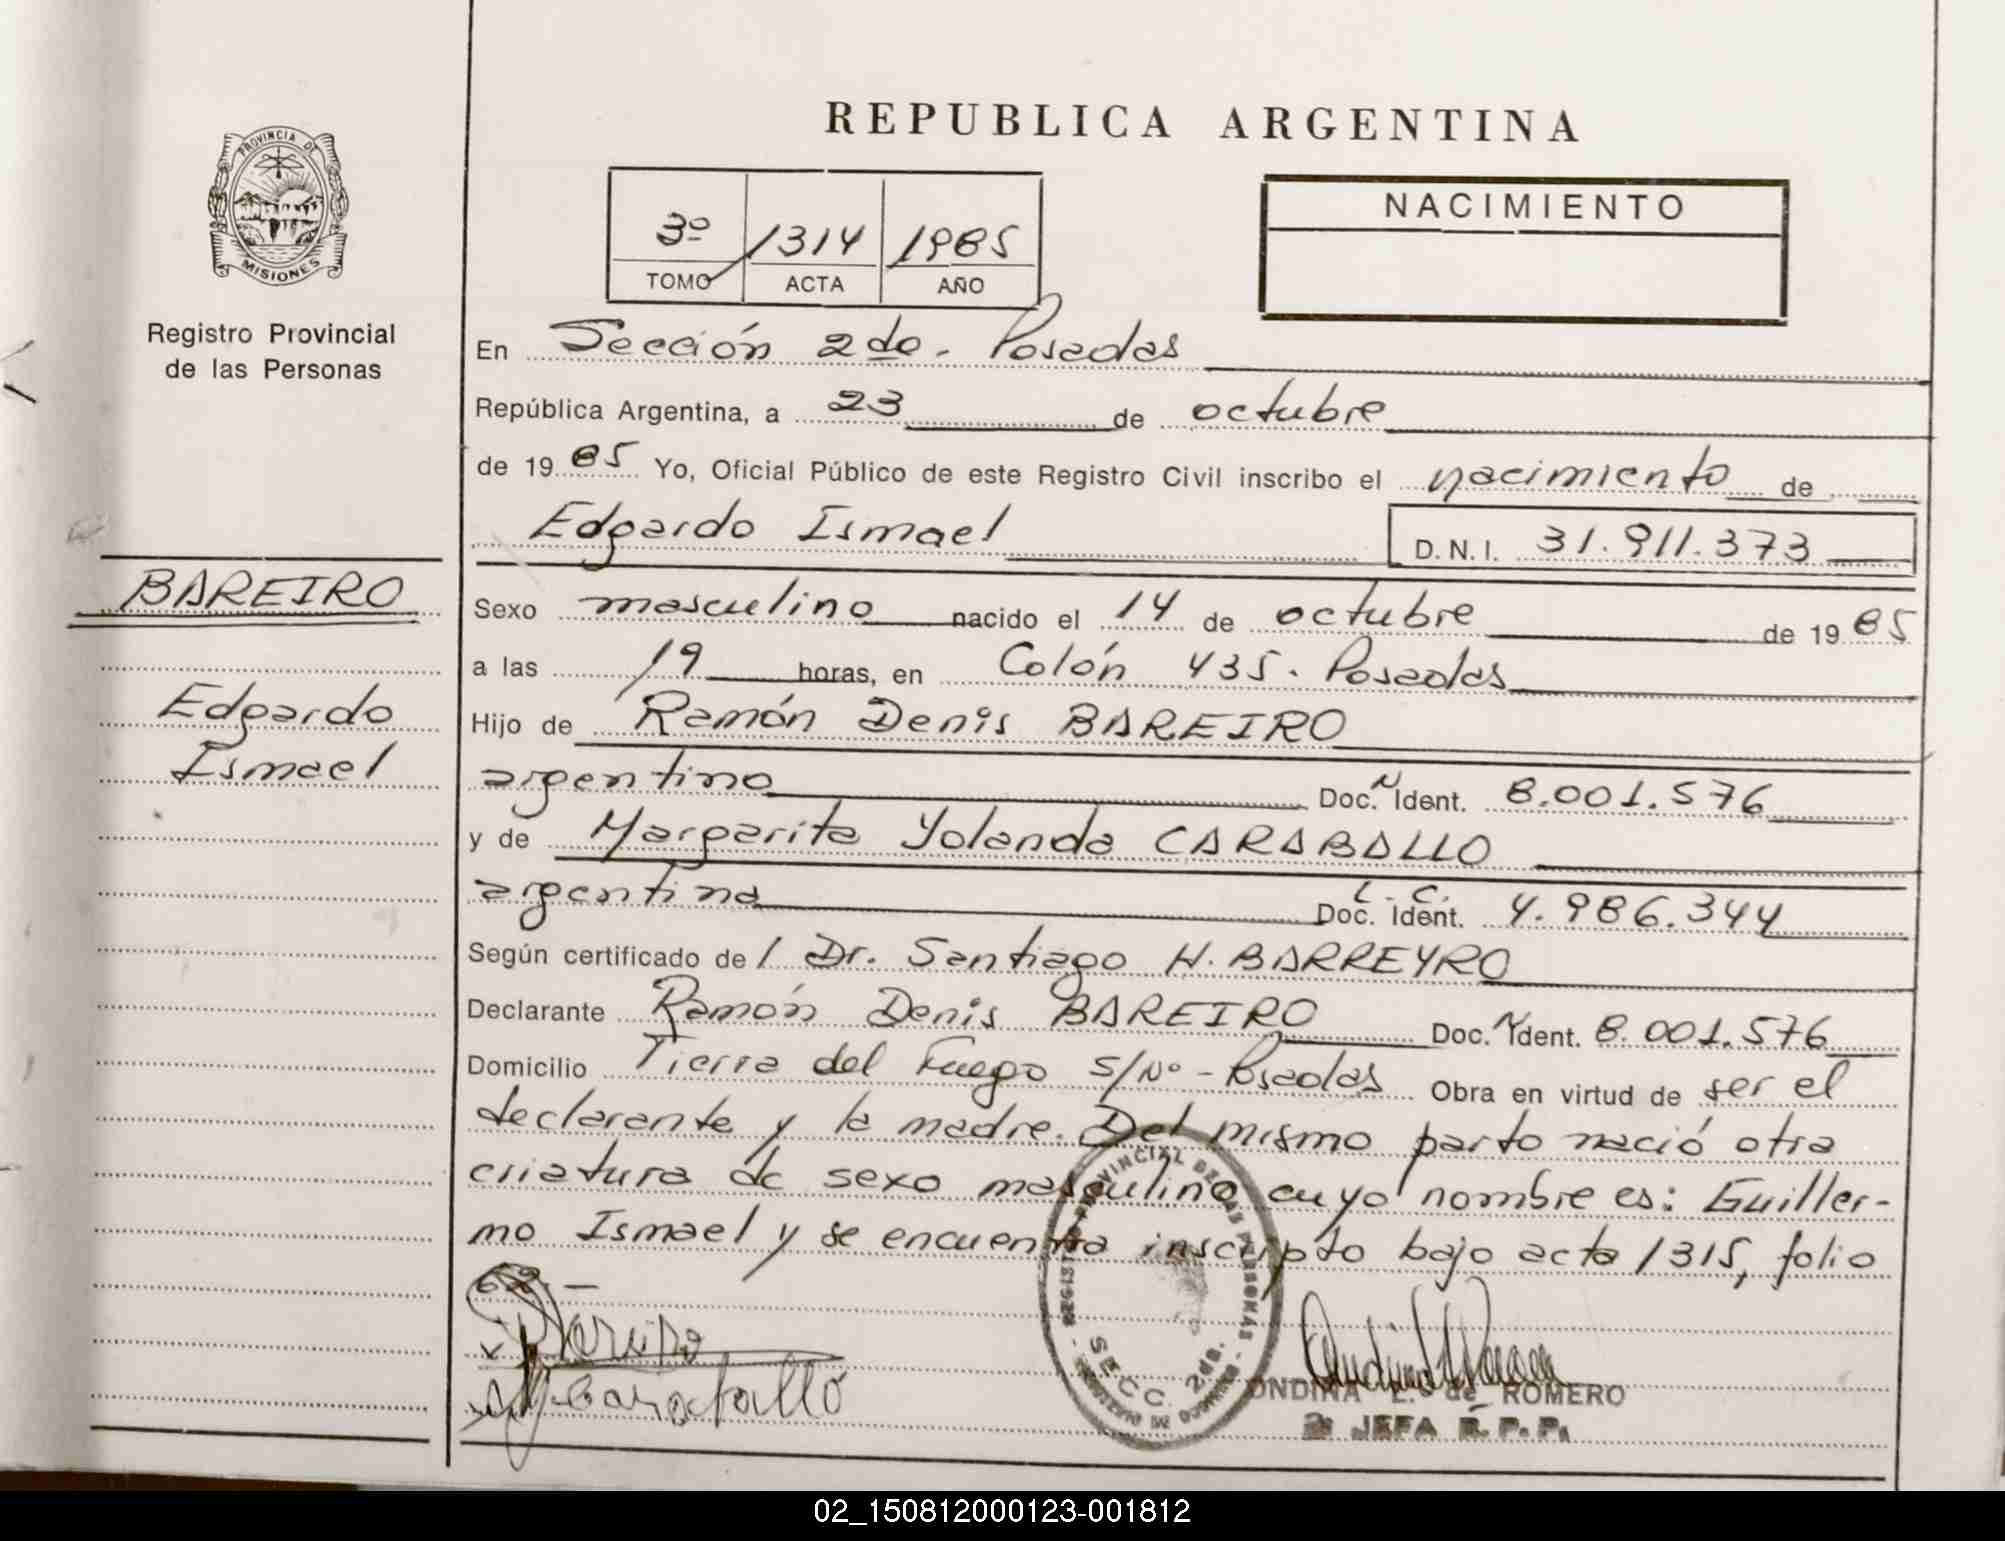 REPUBLICA ARGENTINA
PROVINCIA DE
MISIONES
Registro Provincial
de las Personas
3º 1314 1985
TOMO ACTA AÑO
NACIMIENTO
En Sección 2da. Posadas
República Argentina, a 23 de octubre
de 1985 Yo, Oficial Público de este Registro Civil inscribo el nacimiento de
Edgardo Ismael D.N.I. 31.911.373
BAREIRO
Edgardo
Ismael
Sexo masculino nacido el 14 de octubre de 1985
a las 19 horas, en Colón 435. Posadas
Hijo de Ramón Denis BAREIRO
argentino Doc. N Ident. 8.001.576
y de Margarita Yolanda CARABALLO
argentina L.C. Doc. Ident. 4.986.344
Según certificado de / Dr. Santiago H. BARREYRO
Declarante Ramón Denis BAREIRO Doc. N Ident. 8.001.576
Domicilio Tierra del Fuego s/Nº - Posadas Obra en virtud de ser el
declarante y la madre. Del mismo parto nació otra
criatura de sexo masculino cuyo nombre es: Guiller-
mo Ismael y se encuentra inscripto bajo acta 1315, folio
Bareiro
Caraballo
REGISTRO PROVINCIAL DE LAS PERSONAS
SECC. 2da.
ONDINA L. de ROMERO
JEFA R.P.P.
02_150812000123-001812